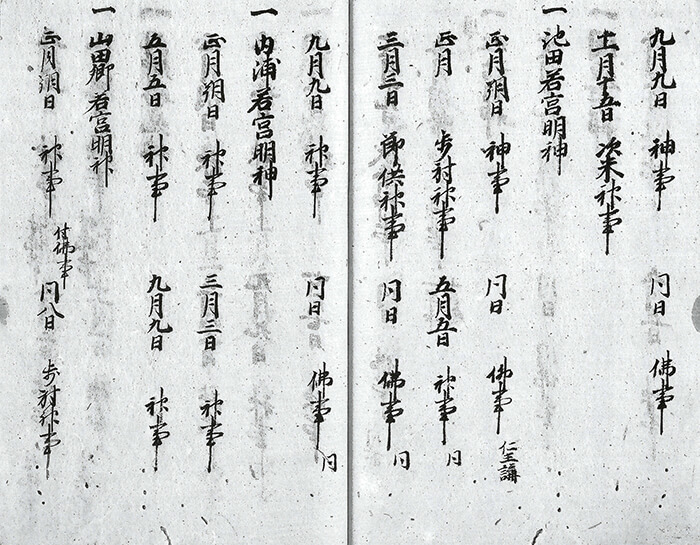 九月九日 神事 同日 佛事
十一月十五日 次米神事
一 池田若宮明神
正月朔日 神事 同日 佛事 仁王講
正月 歩射神事 五月五日 神事 同
三月三日 節供神事 同日 佛事 同
九月九日 神事 同日 佛事 同
一 内浦若宮明神
正月朔日 神事 三月三日 神事
五月五日 神事 九月九日 神事
一 山田郷若宮明神
正月朔日 神事 付佛事 同八日 歩射神事